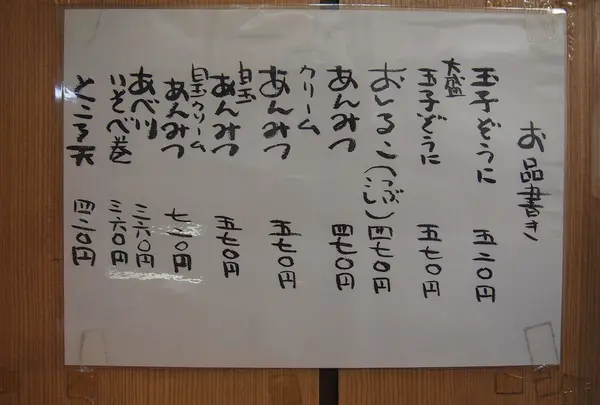 お品書き
玉子ぞうに 五二〇円
大盛玉子ぞうに 五七〇円
おしるこ(つぶこし)四七〇円
あんみつ 四七〇円
クリームあんみつ 五七〇円
白玉あんみつ 五七〇円
白玉クリームあんみつ 七二〇円
あべ川 三六〇円
いそべ巻 三六〇円
ところ天 四二〇円